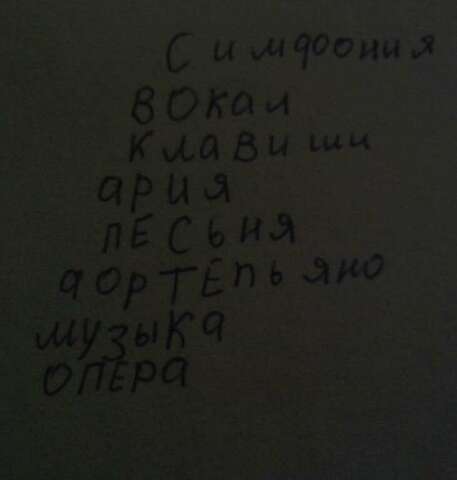 Симфония
вокал
клавиши
ария
песьня
фортепьяно
музыка
опера